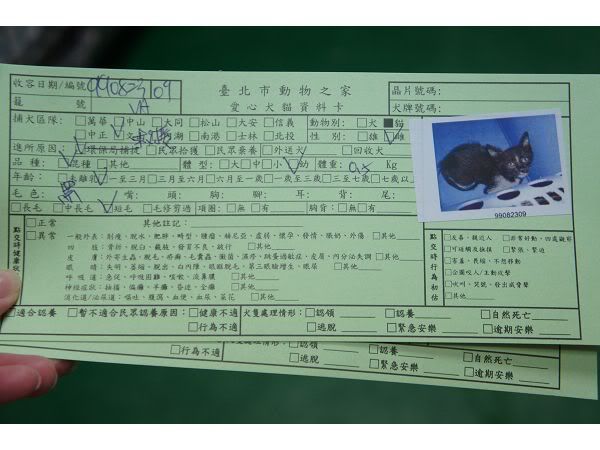 收容日期/編號 99082309
籠號 VA
臺北市動物之家
愛心犬貓資料卡
晶片號碼:
犬牌號碼:
捕犬區隊: □萬華 □中山 □大同 □松山 □大安 □信義 動物別: □犬 ■貓
□中正 □文山 內湖 □南港 □士林 □北投 性別: □雄 □雌
進所原因: □環保局捕捉 □民眾拾獲 □民眾棄養 □外送犬 □回收犬
品種: □混種 □其他 體型: □大□中□小□幼 體重: 0.5 Kg
年齡: □未離乳 □一至三月 □三月至六月 □六月至一歲 □一歲至三歲 □三至七歲 □七歲以上
毛色: 黑 嘴: 頭: 胸: 腳: 耳: 背: 尾:
□長毛 □中長毛 □短毛 □毛修剪過 項圈: □無 □有 胸背: □無 □有
99082309
點交時健康狀
□正常 其他註記:
□異常 一般外表: 削瘦、脫水、肥胖、畸型、腫瘤、赫尼亞、虛弱、懷孕、發情、眼奶、外傷 □其他
四肢: 骨折、脫臼、截肢、發育不良、跛行 □其他
皮膚: 外寄生蟲、脫毛、疥癬、毛囊蟲、黴菌、濕疹、跳蚤過敏症、皮屑、內分泌失調 □其他
眼睛: 失明、萎縮、脫出、白內障、眼瞼脫毛、第三眼瞼增生、眼屎 □其他
呼吸道: 急促、呼吸困難、咳嗽、流鼻膿 □其他
神經症狀: 抽搐、偏癱、半癱、昏迷、全癱 □其他
消化道/泌尿道: 嘔吐、腹瀉、血便、血尿、菜花 □其他
點交時行為初估
□友善、親近人 □非常好動、四處觀察
□可接觸及抽摸 □緊張、緊迫
□害羞、畏縮、不想移動
□企圖咬人/主動攻擊
□吠叫、哭號、發出威脅聲
□其他
□適合認養 □暫不適合民眾認養原因: □健康不適 □行為不適
犬隻處理情形: □認領 □認養 □自然死亡
□逃脫 □緊急安樂 □逾期安樂
□行為不適
犬隻處理情形: □認領 □認養 □自然死亡
□逃脫 □緊急安樂 □逾期安樂